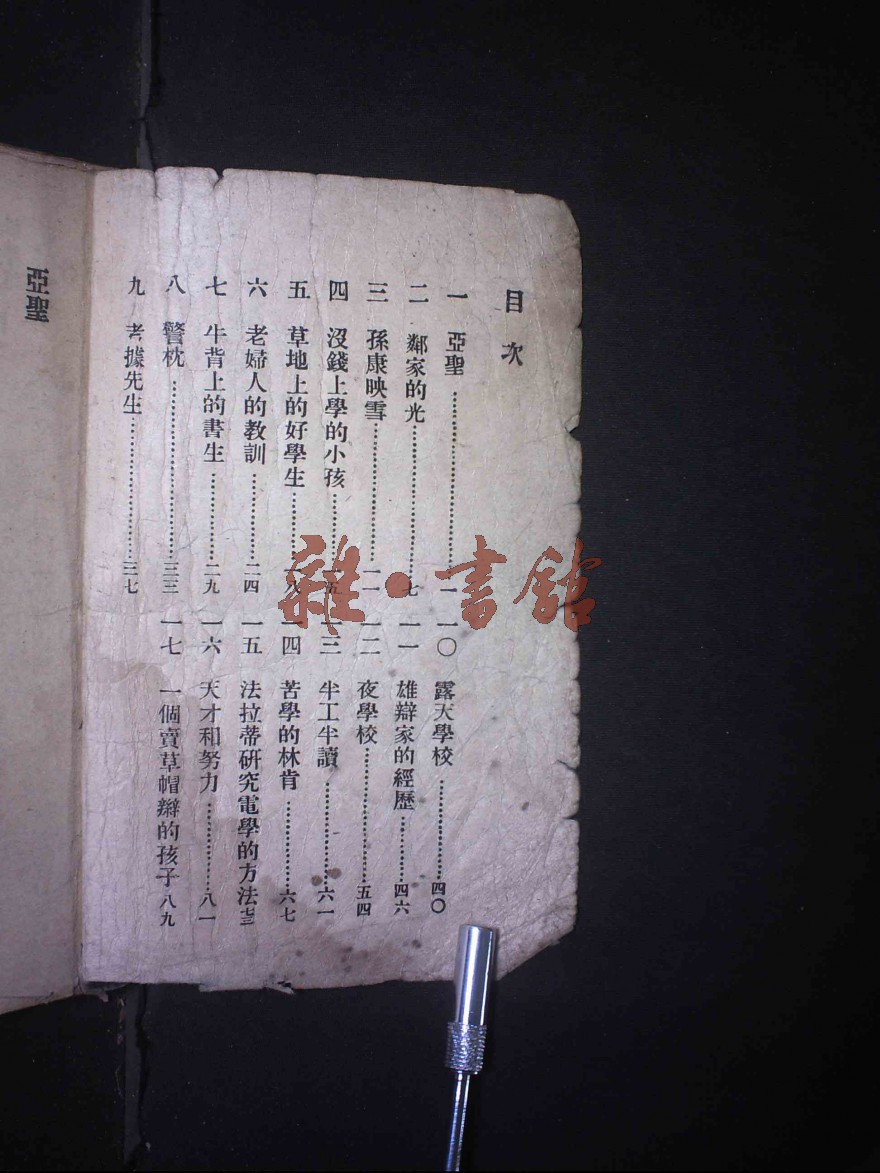 目次
一 亞聖……一
二 鄰家的光……七
三 孫康映雪……一一
四 沒錢上學的小孩……一五
五 草地上的好學生……一八
六 老婦人的教訓……二四
七 牛背上的書生……二九
八 警枕……三三
九 考據先生……三七
一〇 露天學校……四〇
一一 雄辯家的經歷……四六
一二 夜學校……五四
一三 半工半讀……六一
一四 苦學的林肯……六七
一五 法拉蒂研究電學的方法
一六 天才和努力……八一
一七 一個賣草帽辮的孩子 八九
亞聖
雜·書館